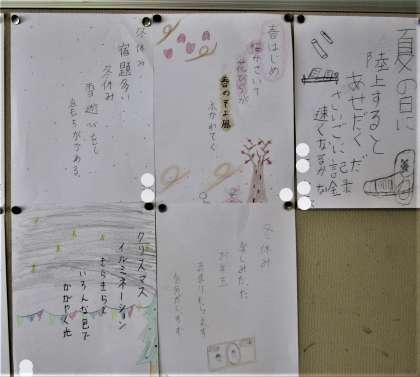 夏の日に
陸上すると
あせだくだ
さいごに記録
速くなるかな
春はじめ
桜がさいて
花びらが
春のそよ風
ふかれてく
冬休み
宿題多い
冬休み
雪遊びをし
冬休み
楽しみだな
お年玉
クリスマス
イルミネーション
きらきらと
いろんな色で
かがやく光